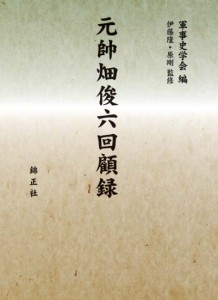 軍事史学会 編
伊藤隆・原剛 監修
元帥畑俊六回顧録
錦正社